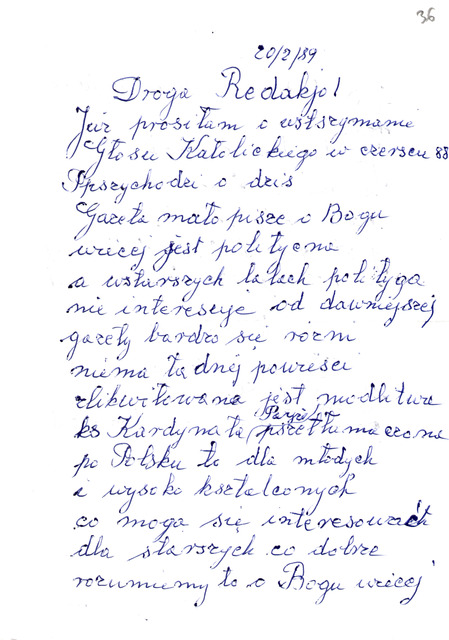 36
20/2/89
Droga Redakjo!
Już prosiłam o wstszymanie
Głosu Katolickiego w czerscu 88
Ipszychodzi o dziś
Gazeta mało pisze o Bogu
więcej jest polityczna
a wstarszych latach polityga
nie interesuje od dawniejszej
gazety bardzo się różni
niema ładnej powieści
zlikwitowana jest modlitwa
ks Kardynała Paryża pszetłumaczona
po Polsku to dla młodych
i wysoko kształconych
co moga się interesować
dla starszych co dobrze
rozumiemy to o Bogu więcej